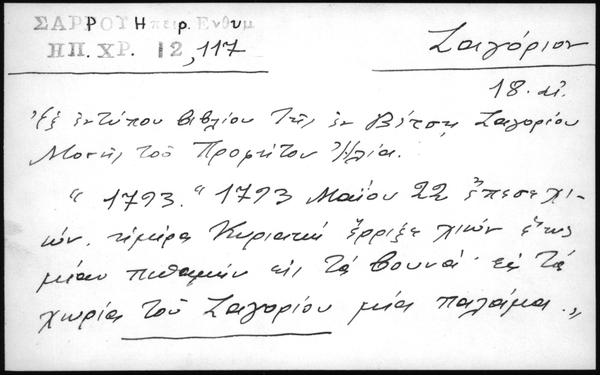 ΣΑΡΡΟΥ Ηπειρ. Ενθυμ
ΗΠ. ΧΡ. 12, 117
Ζαγόριον
18. αἰ.
Ἐξ ἐντύπου βιβλίου τῆς ἐν Βίτσῃ Ζαγορίου
Μονῆς τοῦ Προφήτου Ἠλία.
" 1793. " 1793 Μαΐου 22 ἔπεσε χι-
ών. ἡμέρα Κυριακή ἔρριξε χιών ἕως
μίαν πιθαμήν εἰς τά βουνά· εἰς τά
χωρία τοῦ Ζαγορίου μία παλάμα. "